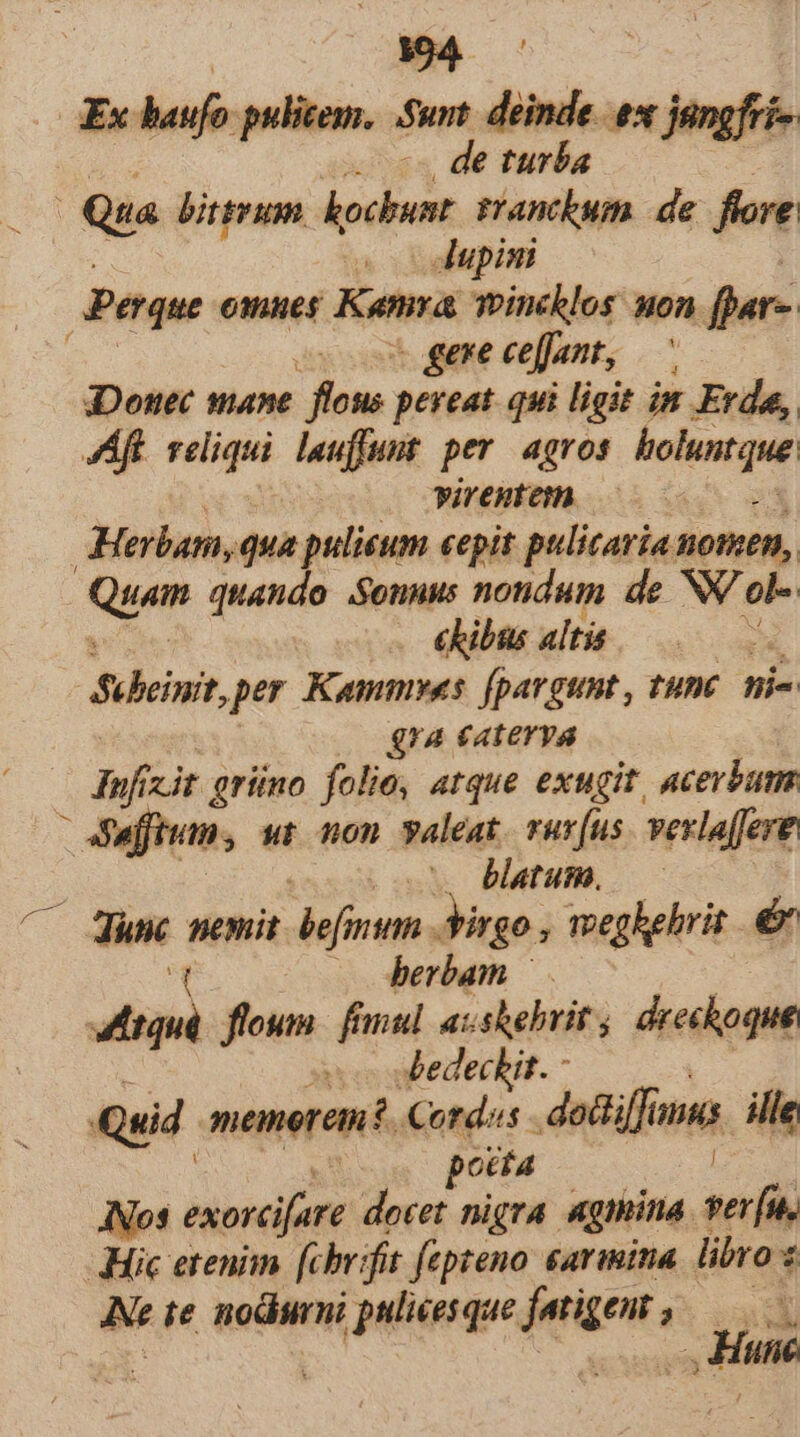 194
Ex hauſo pulicem. Sunt deinde ex jungfri-
de turba
Qua bittrum kochunt tranckum de flore
lupini
Perque omnes Kamra wincklos non ſpar-
gere ceſſant,
Donec mane flous pereat qui ligit in Erda,
Aſt reliqui lauſſunt per agros holuntque
virentem
Herbam, qua pulicum cepit pulicaria nomen,
Quam quando Sonnus nondum de Wol-
ckibus altis
Scheinit, per Kammras ſpargunt, tunc ni-
gra caterva
Infixit grüno folio, atque exugit acerbum
Saſſtum, ut non valeat rurſus verlaſſere
blatum.
Tunc nemit beſmum virgo, wegkehrit &
herbam
Atquè floum ſimul auskehrit, dreckoque
bedeckit.
Quid memorem? Cordus doctiſſimus ille
poëta
Nos exorciſare docet nigra agmina verſu.
Hic etenim ſchriſit ſepteno carmina libro:
Ne te nocturni pulicesque fatigent,
Hunc